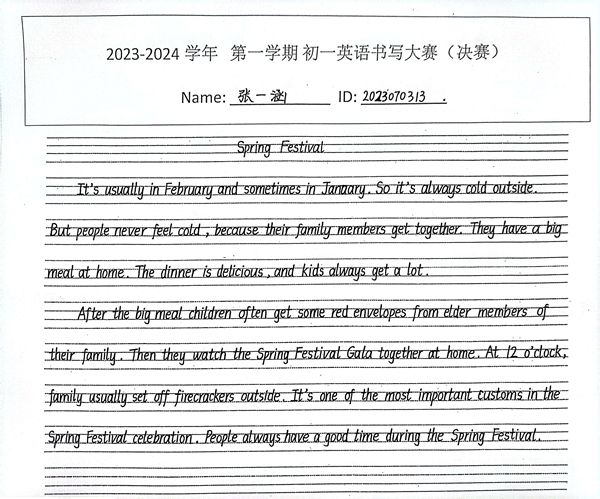 2023-2024 学年 第一学期 初一英语书写大赛（决赛）
Name: 张一涵 ID: 2023070313 .
Spring Festival
It's usually in February and sometimes in January. So it's always cold outside.
But people never feel cold, because their family members get together. They have a big
meal at home. The dinner is delicious, and kids always get a lot.
After the big meal children often get some red envelopes from elder members of
their family. Then they watch the Spring Festival Gala together at home. At 12 o'clock,
family usually set off firecrackers outside. It's one of the most important customs in the
Spring Festival celebration. People always have a good time during the Spring Festival.